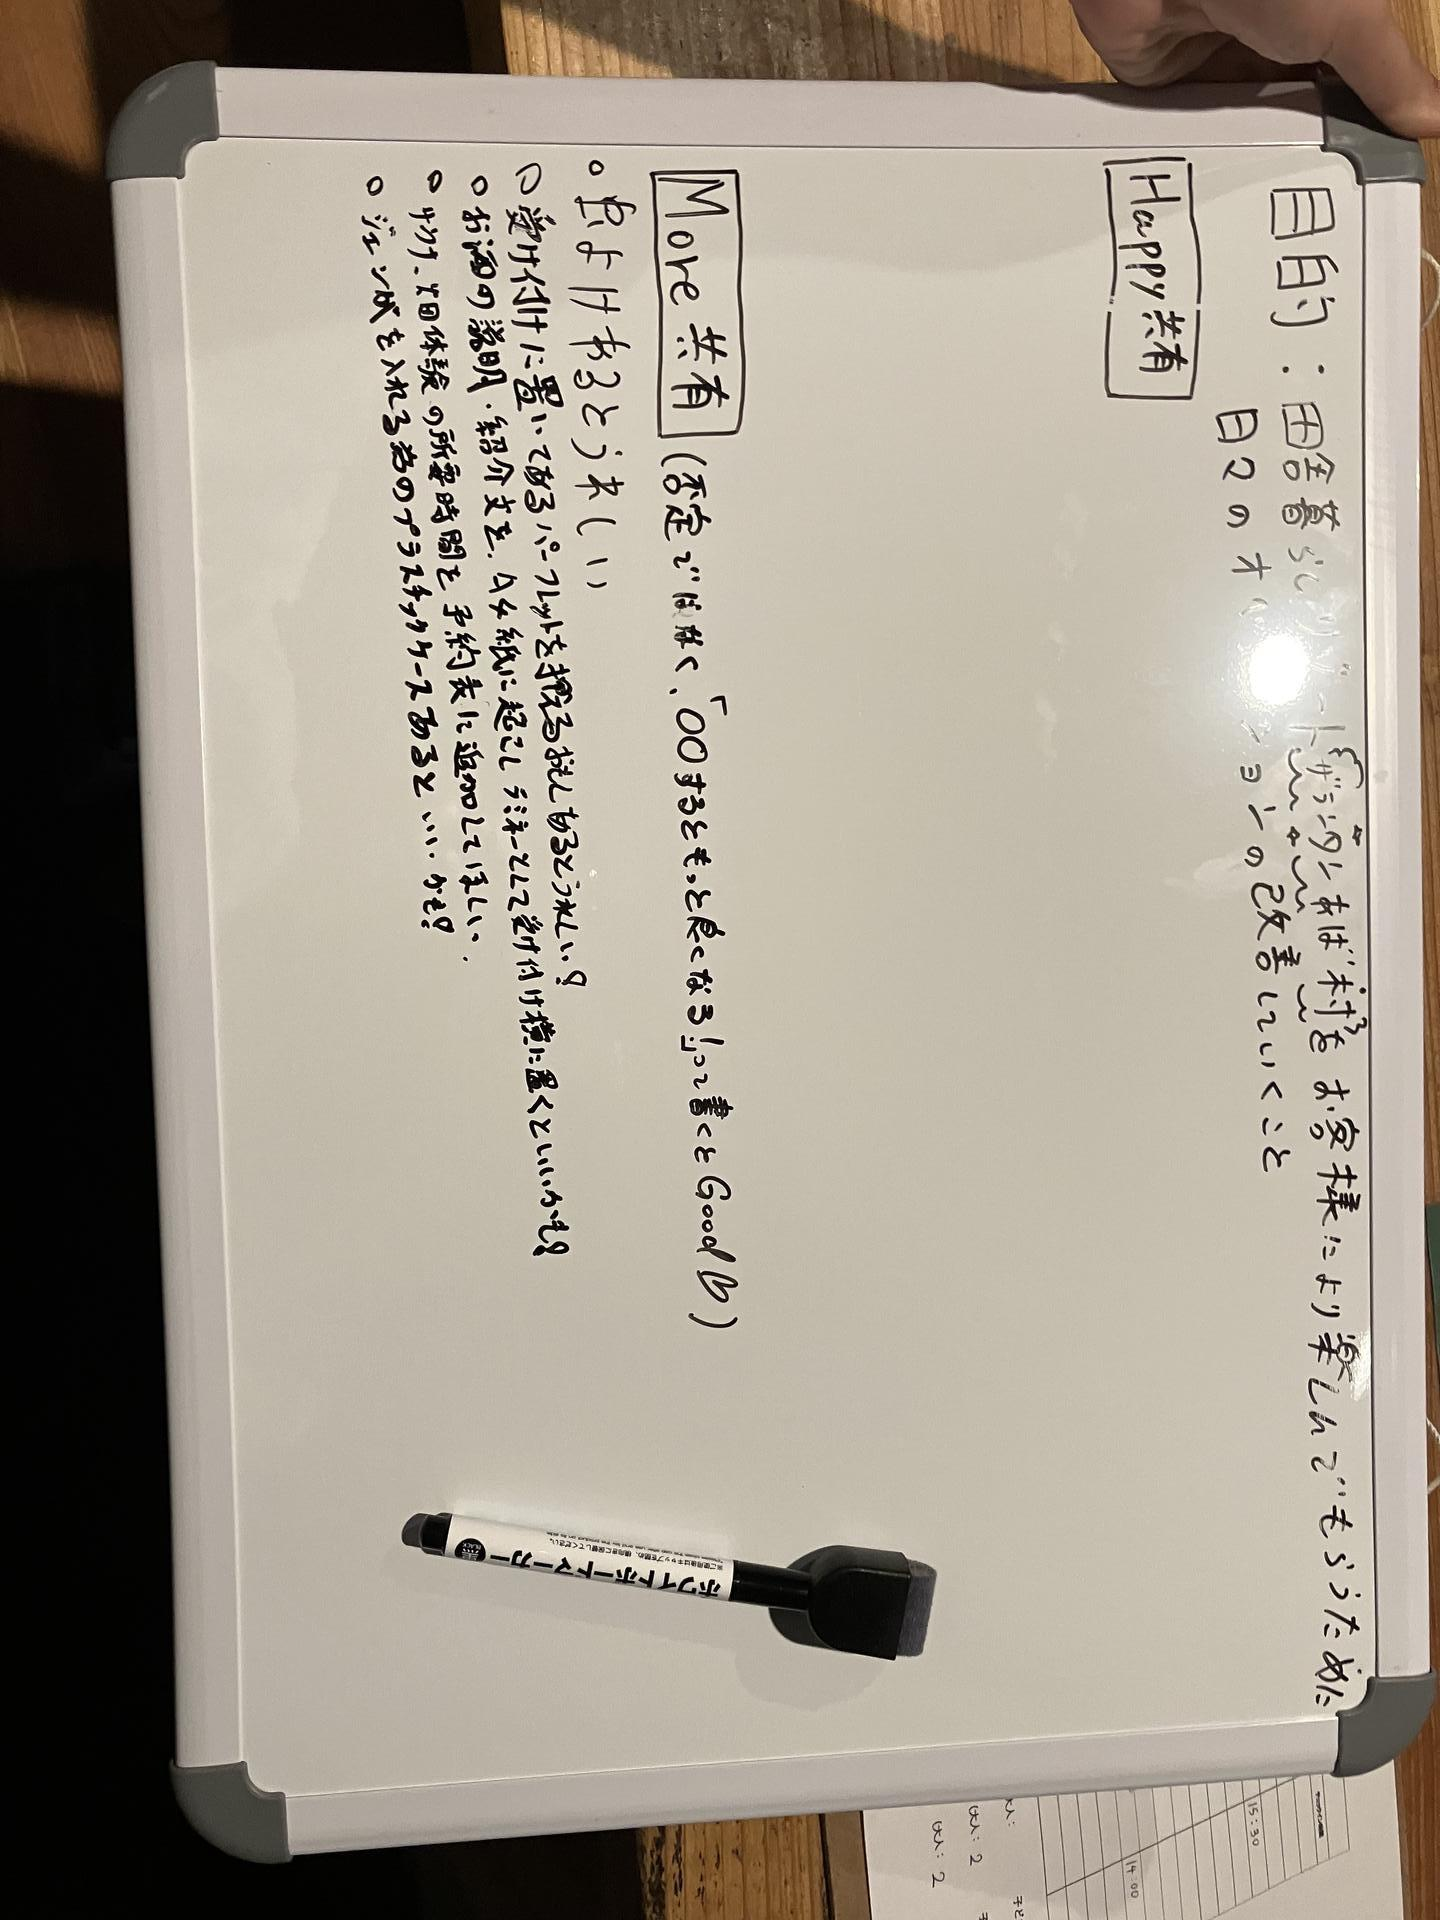 目的：田舎暮らしリゾート ザランタンあば村をお客様により楽しんでもらうために
日々のオペレーションの改善していくこと
Happy共有
More 共有 (否定ではなく、「○○するともっと良くなる!」って書くとGood)
虫よけあるとうれしい
受け付けに置いてあるパーフレットを あるとうれしい!
お酒の説明・紹介文を、A4紙に起こしラミネートして受け付け横に置くといいかも!
サウナ、 体験の所要時間を予約表に追加してほしい.
ジェンガを入れる為のプラスチックケースあるといいかも!
ホワイトボードマーカー
黒
BLACK
15:30
14:00
大人:
大人: 2
大人: 2